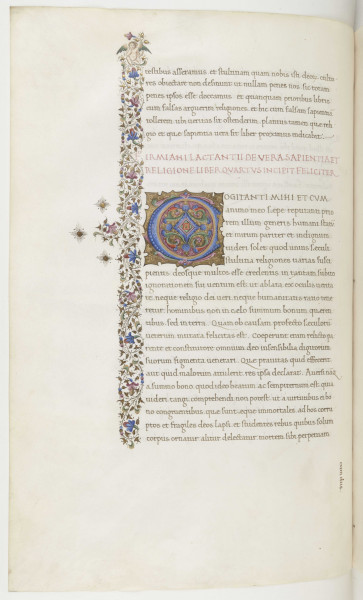 testibus asseramus. et stultitiam quam nobis isti deorum culto
res obiectant non desinunt ut nullam penes nos. sic totam
penes ipsos esse doceamus. et quanquam prioribus libris
cum falsae arguerentur religiones. et hic cum falsa sapientia
tolleretur. ubi ueritas sit ostenderim. planius tamen quae reli
gio et quae sapientia uera sit liber proximus indicabit.
FIRMIANI LACTANTII DE VERA SAPIENTIA ET
RELIGIONE LIBER QVARTVS INCIPIT FELICITER
COGITANTI MIHI ET CVM
animo meo saepe reputanti pris
tinum illum generis humani statum
et mirum pariter et indignum
uideri solet quod unius saeculi
stultitia religiones uarias susci
pientis. deosque multos esse credentis in tantam subito
ignorationem sui uentum est. ut ablata ex oculis uerita
te. neque religio dei ueri. neque humanitatis ratio tene
retur. hominibus non in caelo summum bonum quaeren
tibus. sed in terra. Quam ob causam profecto saeculorum
ueterum mutata felicitas est. Coeperunt enim relicto pa
rente et constitutore omnium deo insensibilia digitorum
suorum figmenta uenerari. Quae prauitas quid effecerit
aut quid malorum attulerit. res ipsa declarat. Auersi nanque
a summo bono. quod ideo beatum ac sempiternum est. quia
uideri. tangi. comprehendi non potest. et a uirtutibus ei bo
no congruentibus. quae sunt aeque immortales. ad hos corru
ptos et fragiles deos lapsi. et studentes rebus quibus solum
corpus ornatur. alitur. delectatur. mortem sibi perpetuam